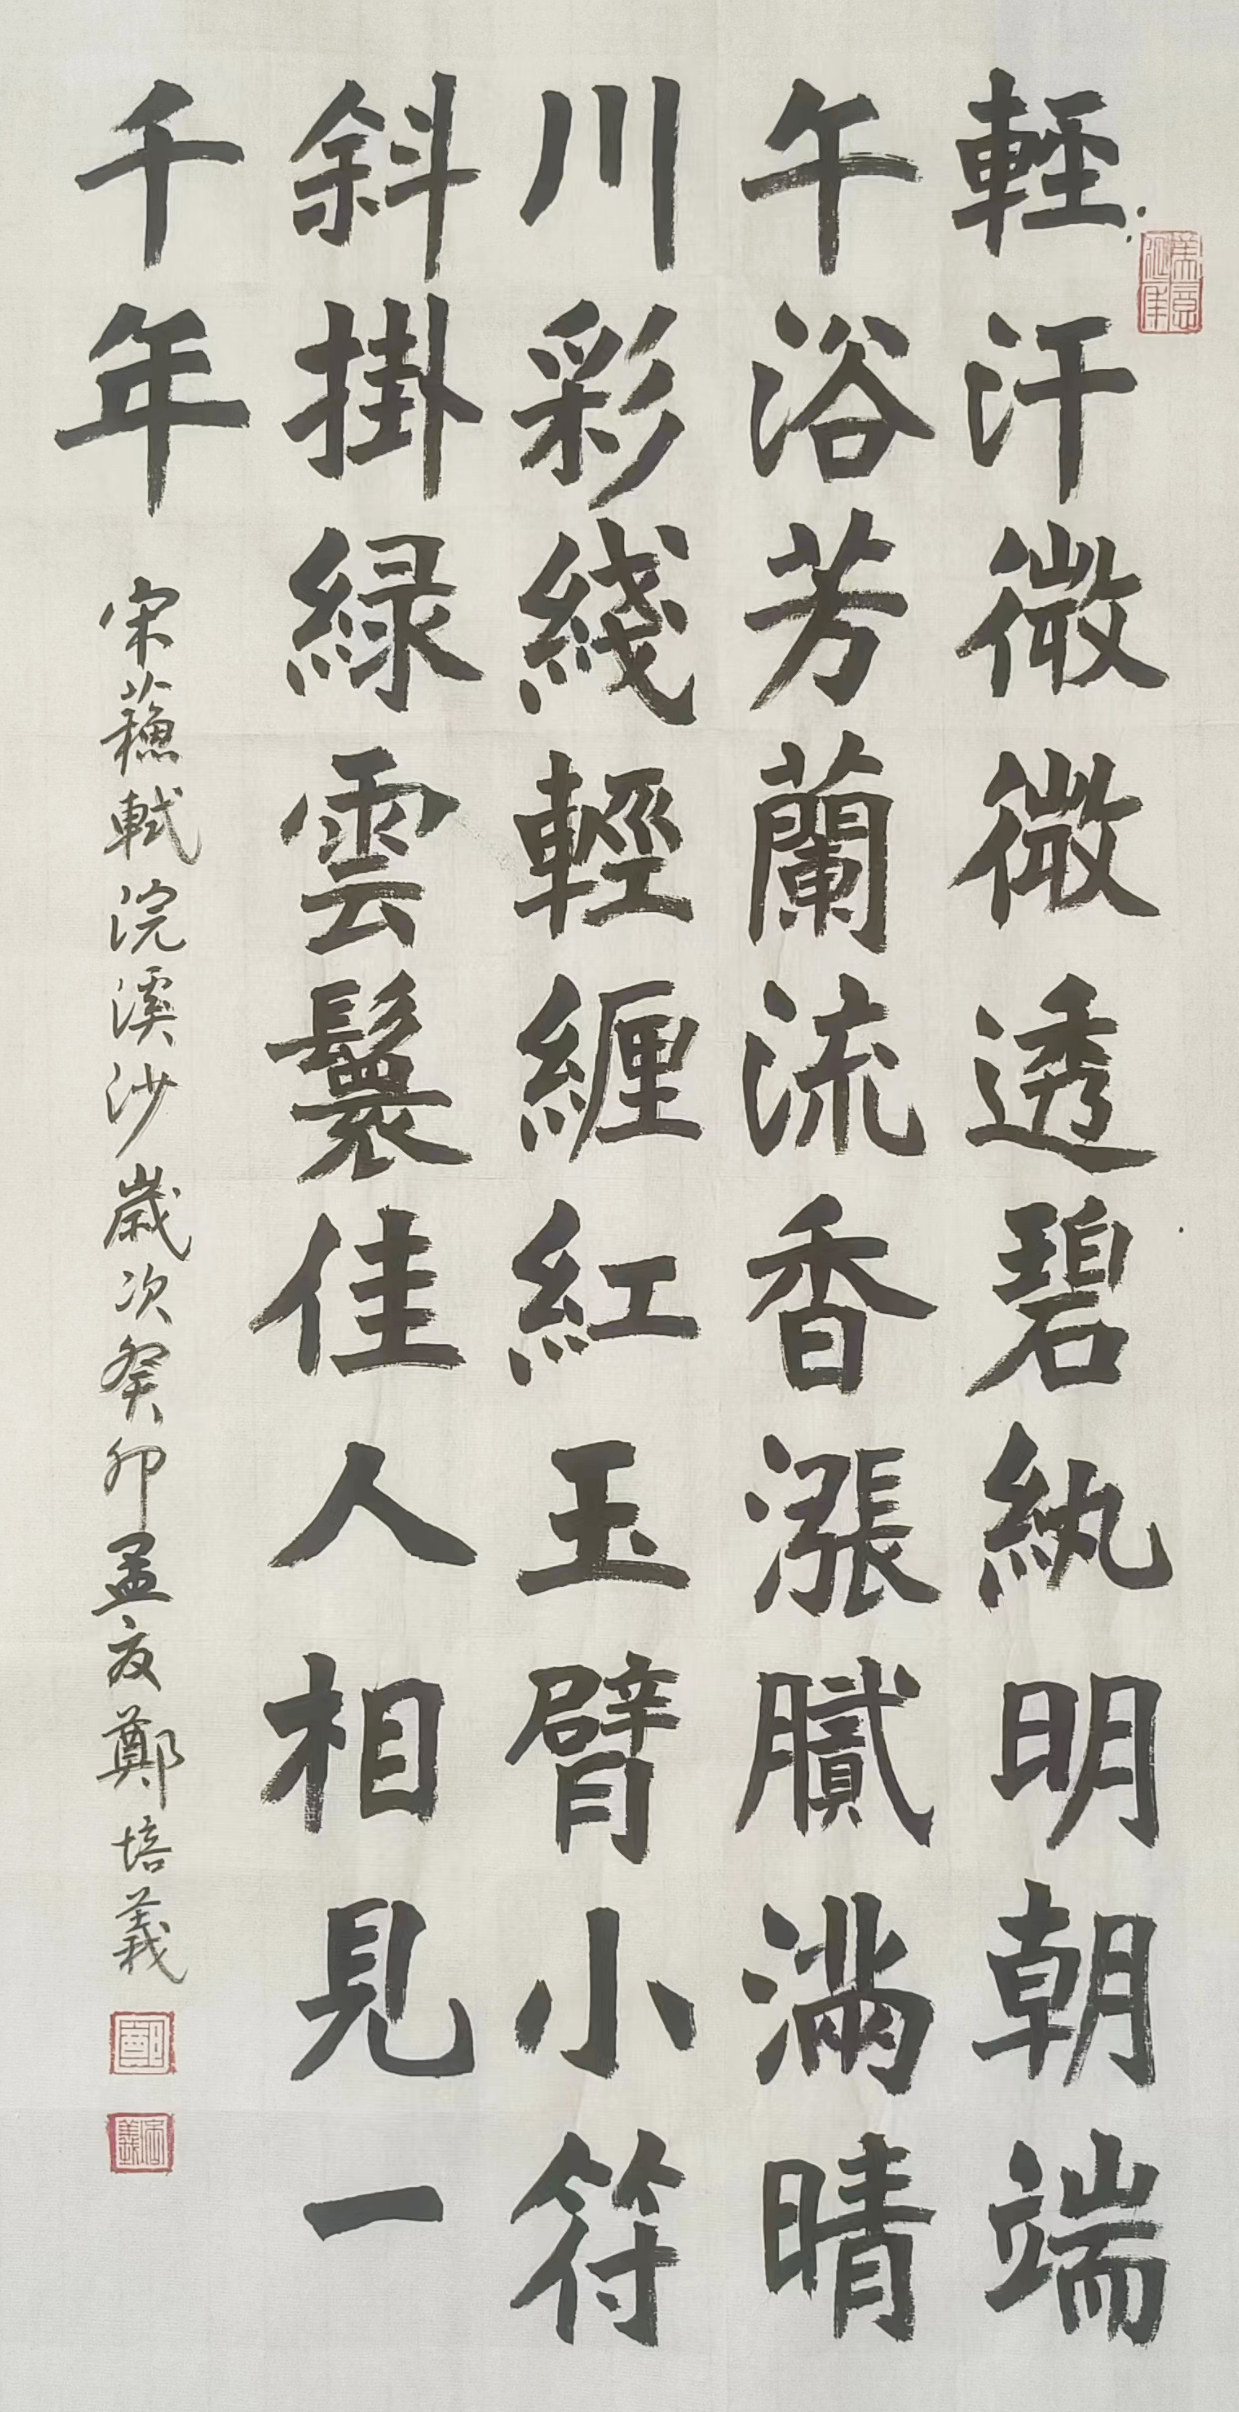 輕汗微微透碧紈明朝端
午浴芳蘭流香漲膩滿晴
川彩綫輕纏紅玉臂小符
斜掛緑雲鬟佳人相見一
千年
宋蘓軾浣溪沙歲次癸卯孟夏鄭培義
鄭
培義